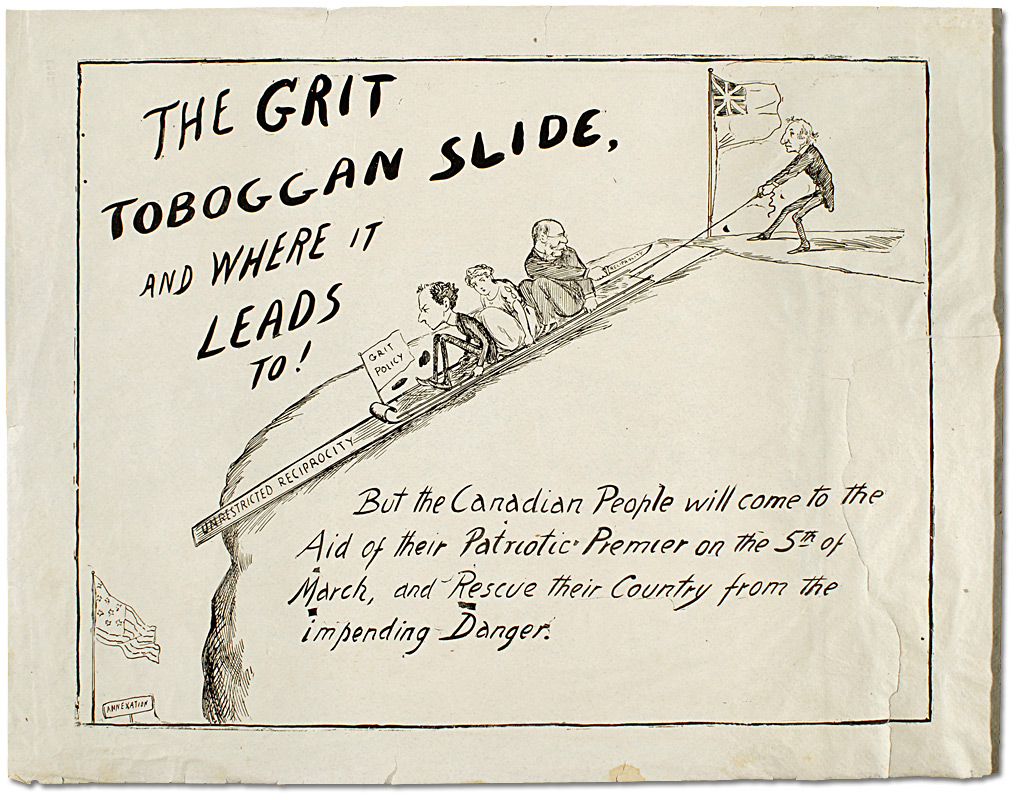 THE GRIT
TOBOGGAN SLIDE,
AND WHERE IT
LEADS
TO!
GRIT
POLICY
RECIPROCITY
UNRESTRICTED RECIPROCITY
But the Canadian People will come to the
Aid of their Patriotic Premier on the 5th of
March, and Rescue their Country from the
impending Danger.
ANNEXATION